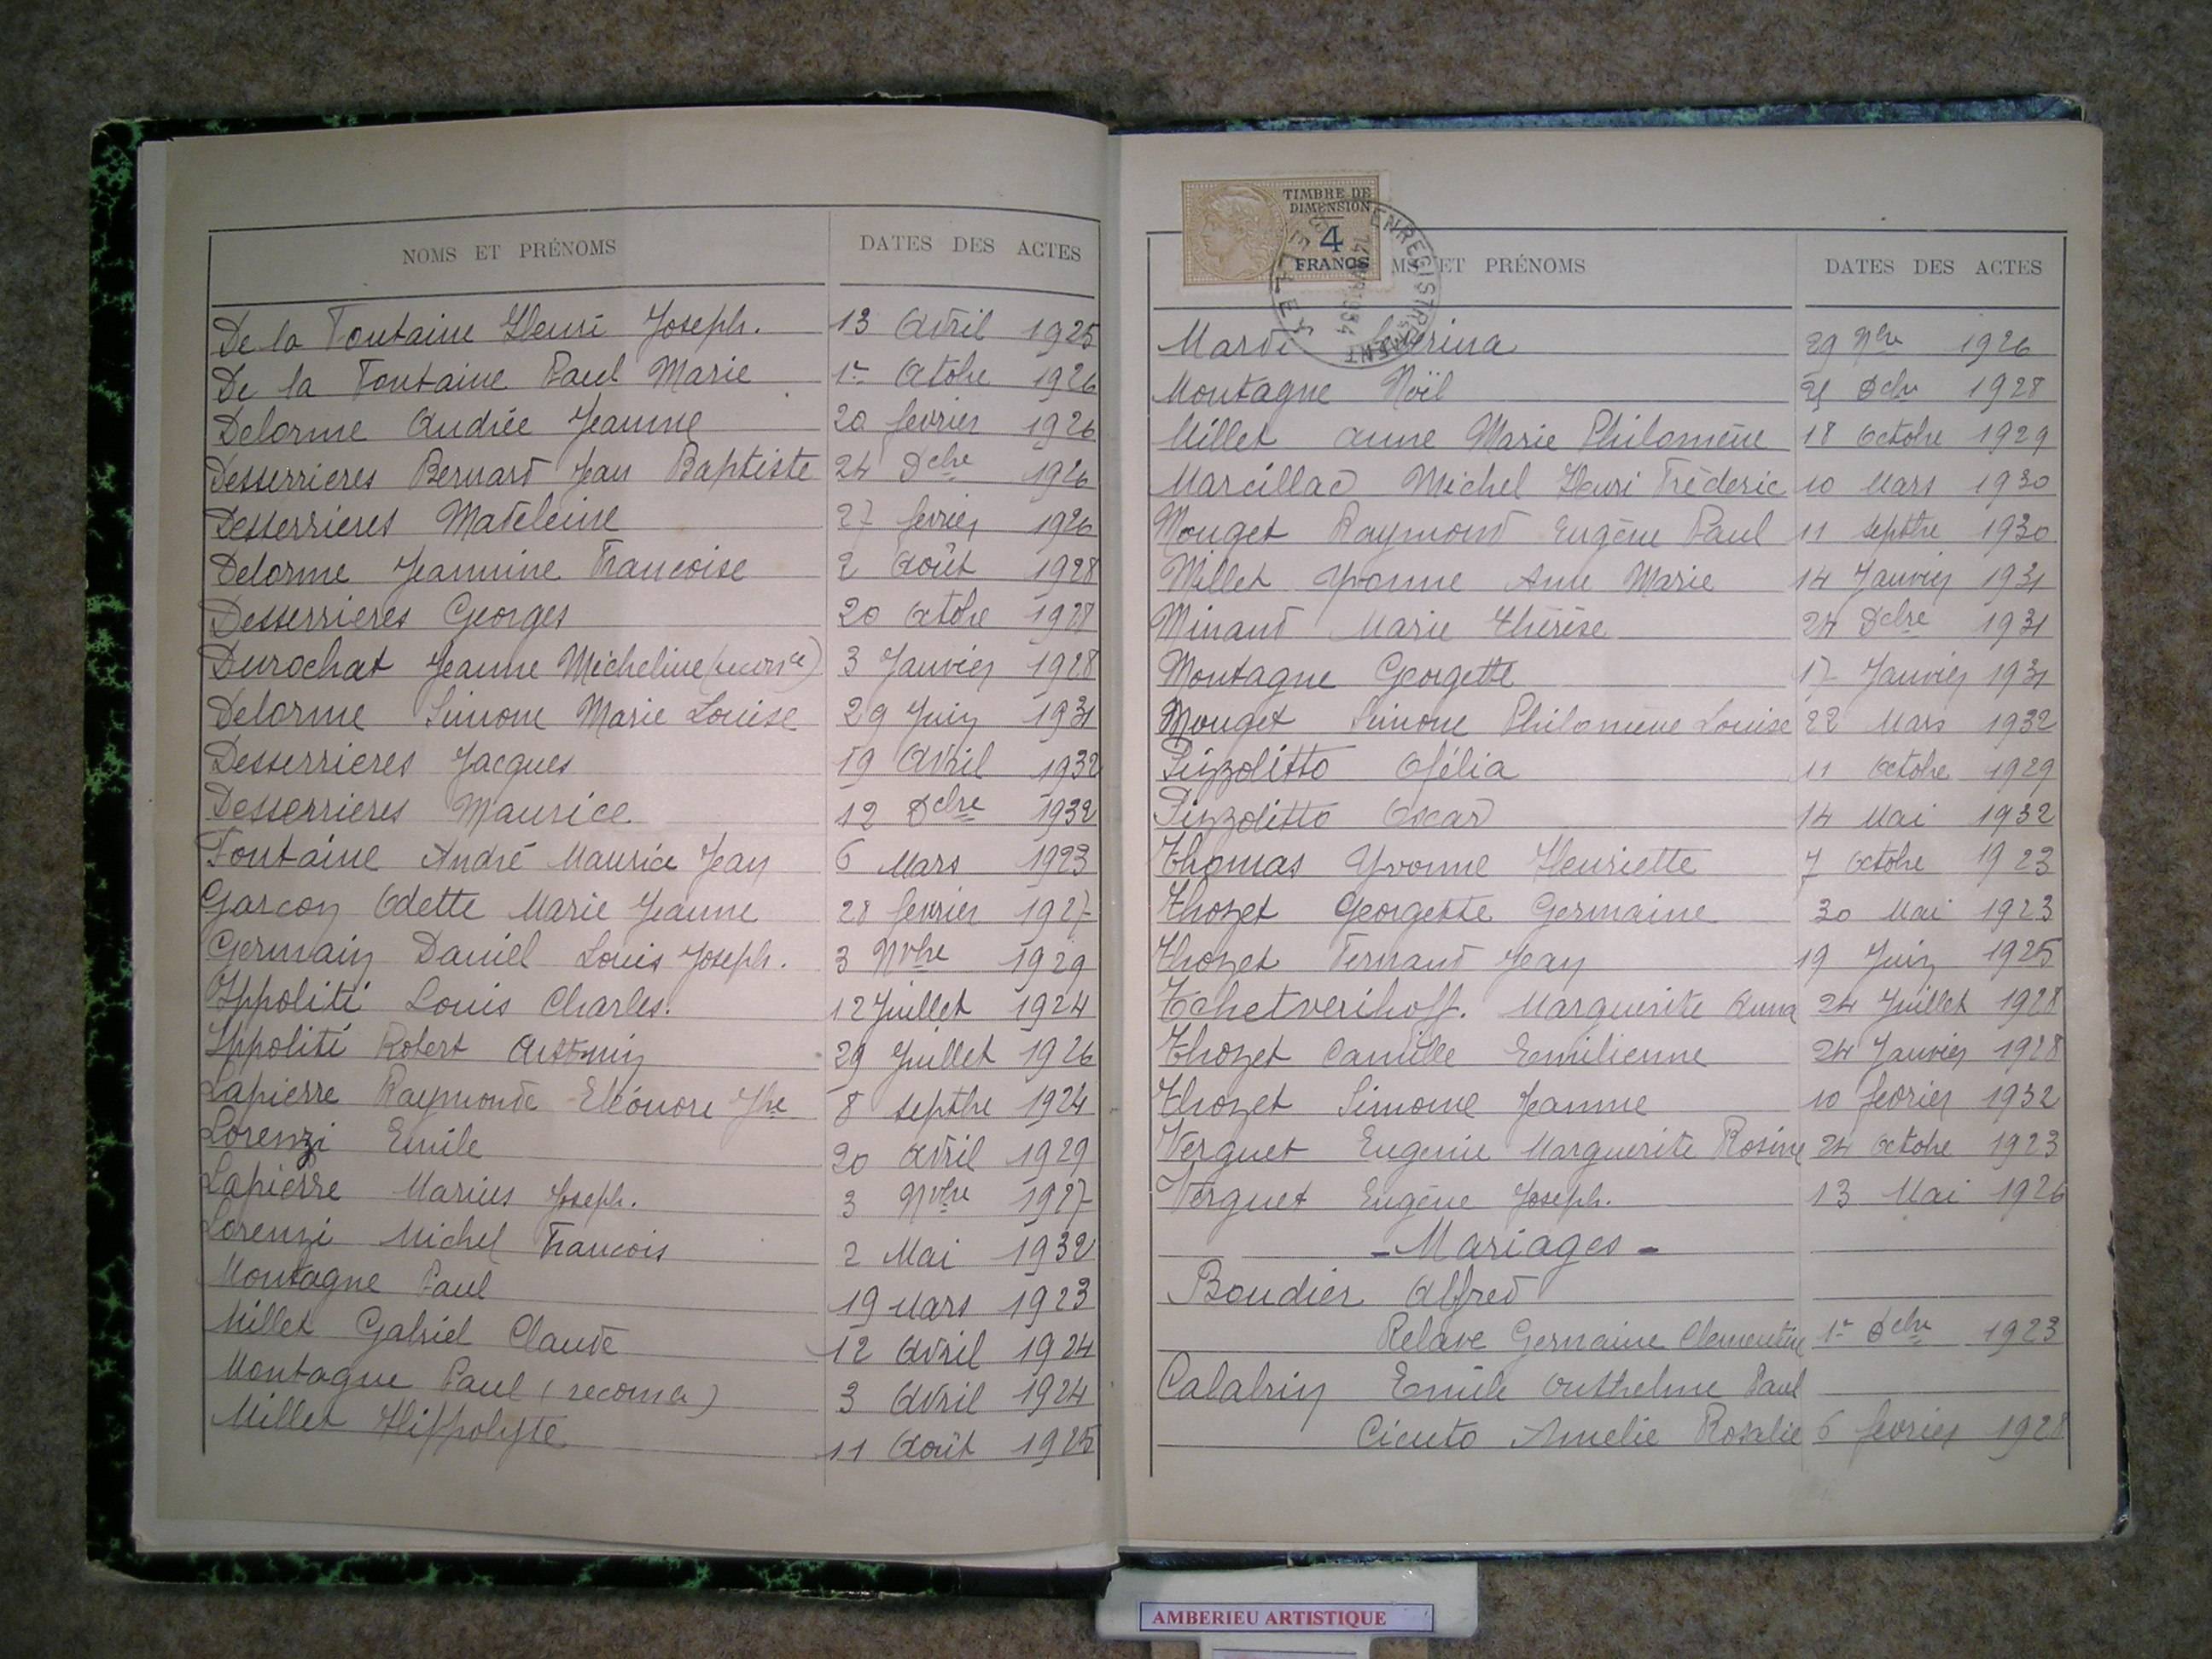 NOMS ET PRÉNOMS DATES DES ACTES
De la Fontaine Henri Joseph. 13 Avril 1925
De la Fontaine Paul Marie 1er Octobre 1926
Delorme Andrée Jeanne 20 fevrier 1926
Desserrieres Bernard Jean Baptiste 24 Dcbre 1926
Desserrieres Madeleine 27 fevrier 1926
Delorme Jeannine Francoise 2 Août 1928
Desserrieres Georges 20 Octobre 1928
Durochat Jeanne Micheline 3 Janvier 1928
Delorme Simone Marie Louise 29 Juin 1931
Desserrieres Jacques 19 Avril 1932
Desserrieres Maurice 12 Dcbre 1932
Fontaine André Maurice Jean 6 Mars 1923
Garcon Odette Marie Jeanne 28 fevrier 1927
Germain Daniel Louis Joseph. 3 Nvbre 1929
Ippoliti Louis Charles. 12 Juillet 1924
Ippoliti Robert 29 Juillet 1926
Lapierre Raymonde Eléonore 8 septbre 1924
Lorenzi Emile 20 Avril 1929
Lapierre Marius Joseph. 3 Nvbre 1927
Lorenzi Michel Francois 2 Mai 1932
Montagne Paul 19 Mars 1923
Millet Gabriel Claude 12 Avril 1924
Montagne Paul 3 Avril 1924
Millet Hippolyte 11 Août 1925
TIMBRE DE
DIMENSION
4
FRANCS
ENREGISTREMENT
BELLEY
MS ET PRÉNOMS DATES DES ACTES
Mardi 29 1926
Montagne Noël Dcbre 1928
Millet Anne Marie Philomène 18 Octobre 1929
Marcillac Michel Henri Fréderic 10 Mars 1930
Mouget Raymond Eugène Paul 11 septbre 1930
Millet Yvonne Anne Marie 14 Janvier 1931
Minand Marie Thérèse 24 Dcbre 1931
Montagne Georgette 17 Janvier 1931
Mouget Simone Philomène Louise 22 Mars 1932
Pizzolitto Ofélia 11 Octobre 1929
Pizzolitto Oscar 14 Mai 1932
Thomas Yvonne Henriette 7 Octobre 1923
Thozet Georgette Germaine 30 Mai 1923
Thozet Fernand Jean 19 Juin 1925
Tchetverikoff. Marguerite Anna 24 Juillet 1928
Thozet Camille Emilienne 24 Janvier 1928
Thozet Simonne Jeanne 10 fevrier 1932
Verguet Eugenie Marguerite Rosine 24 Octobre 1923
Verguet Eugène Joseph. 13 Mai 1926
- Mariages -
Boudier Alfred
Relave Germaine Clementine 1er Dcbre 1923
Calabrin Emile Anthelme Paul
Cicuto Amelie Rosalie 6 fevrier 1928
AMBERIEU ARTISTIQUE